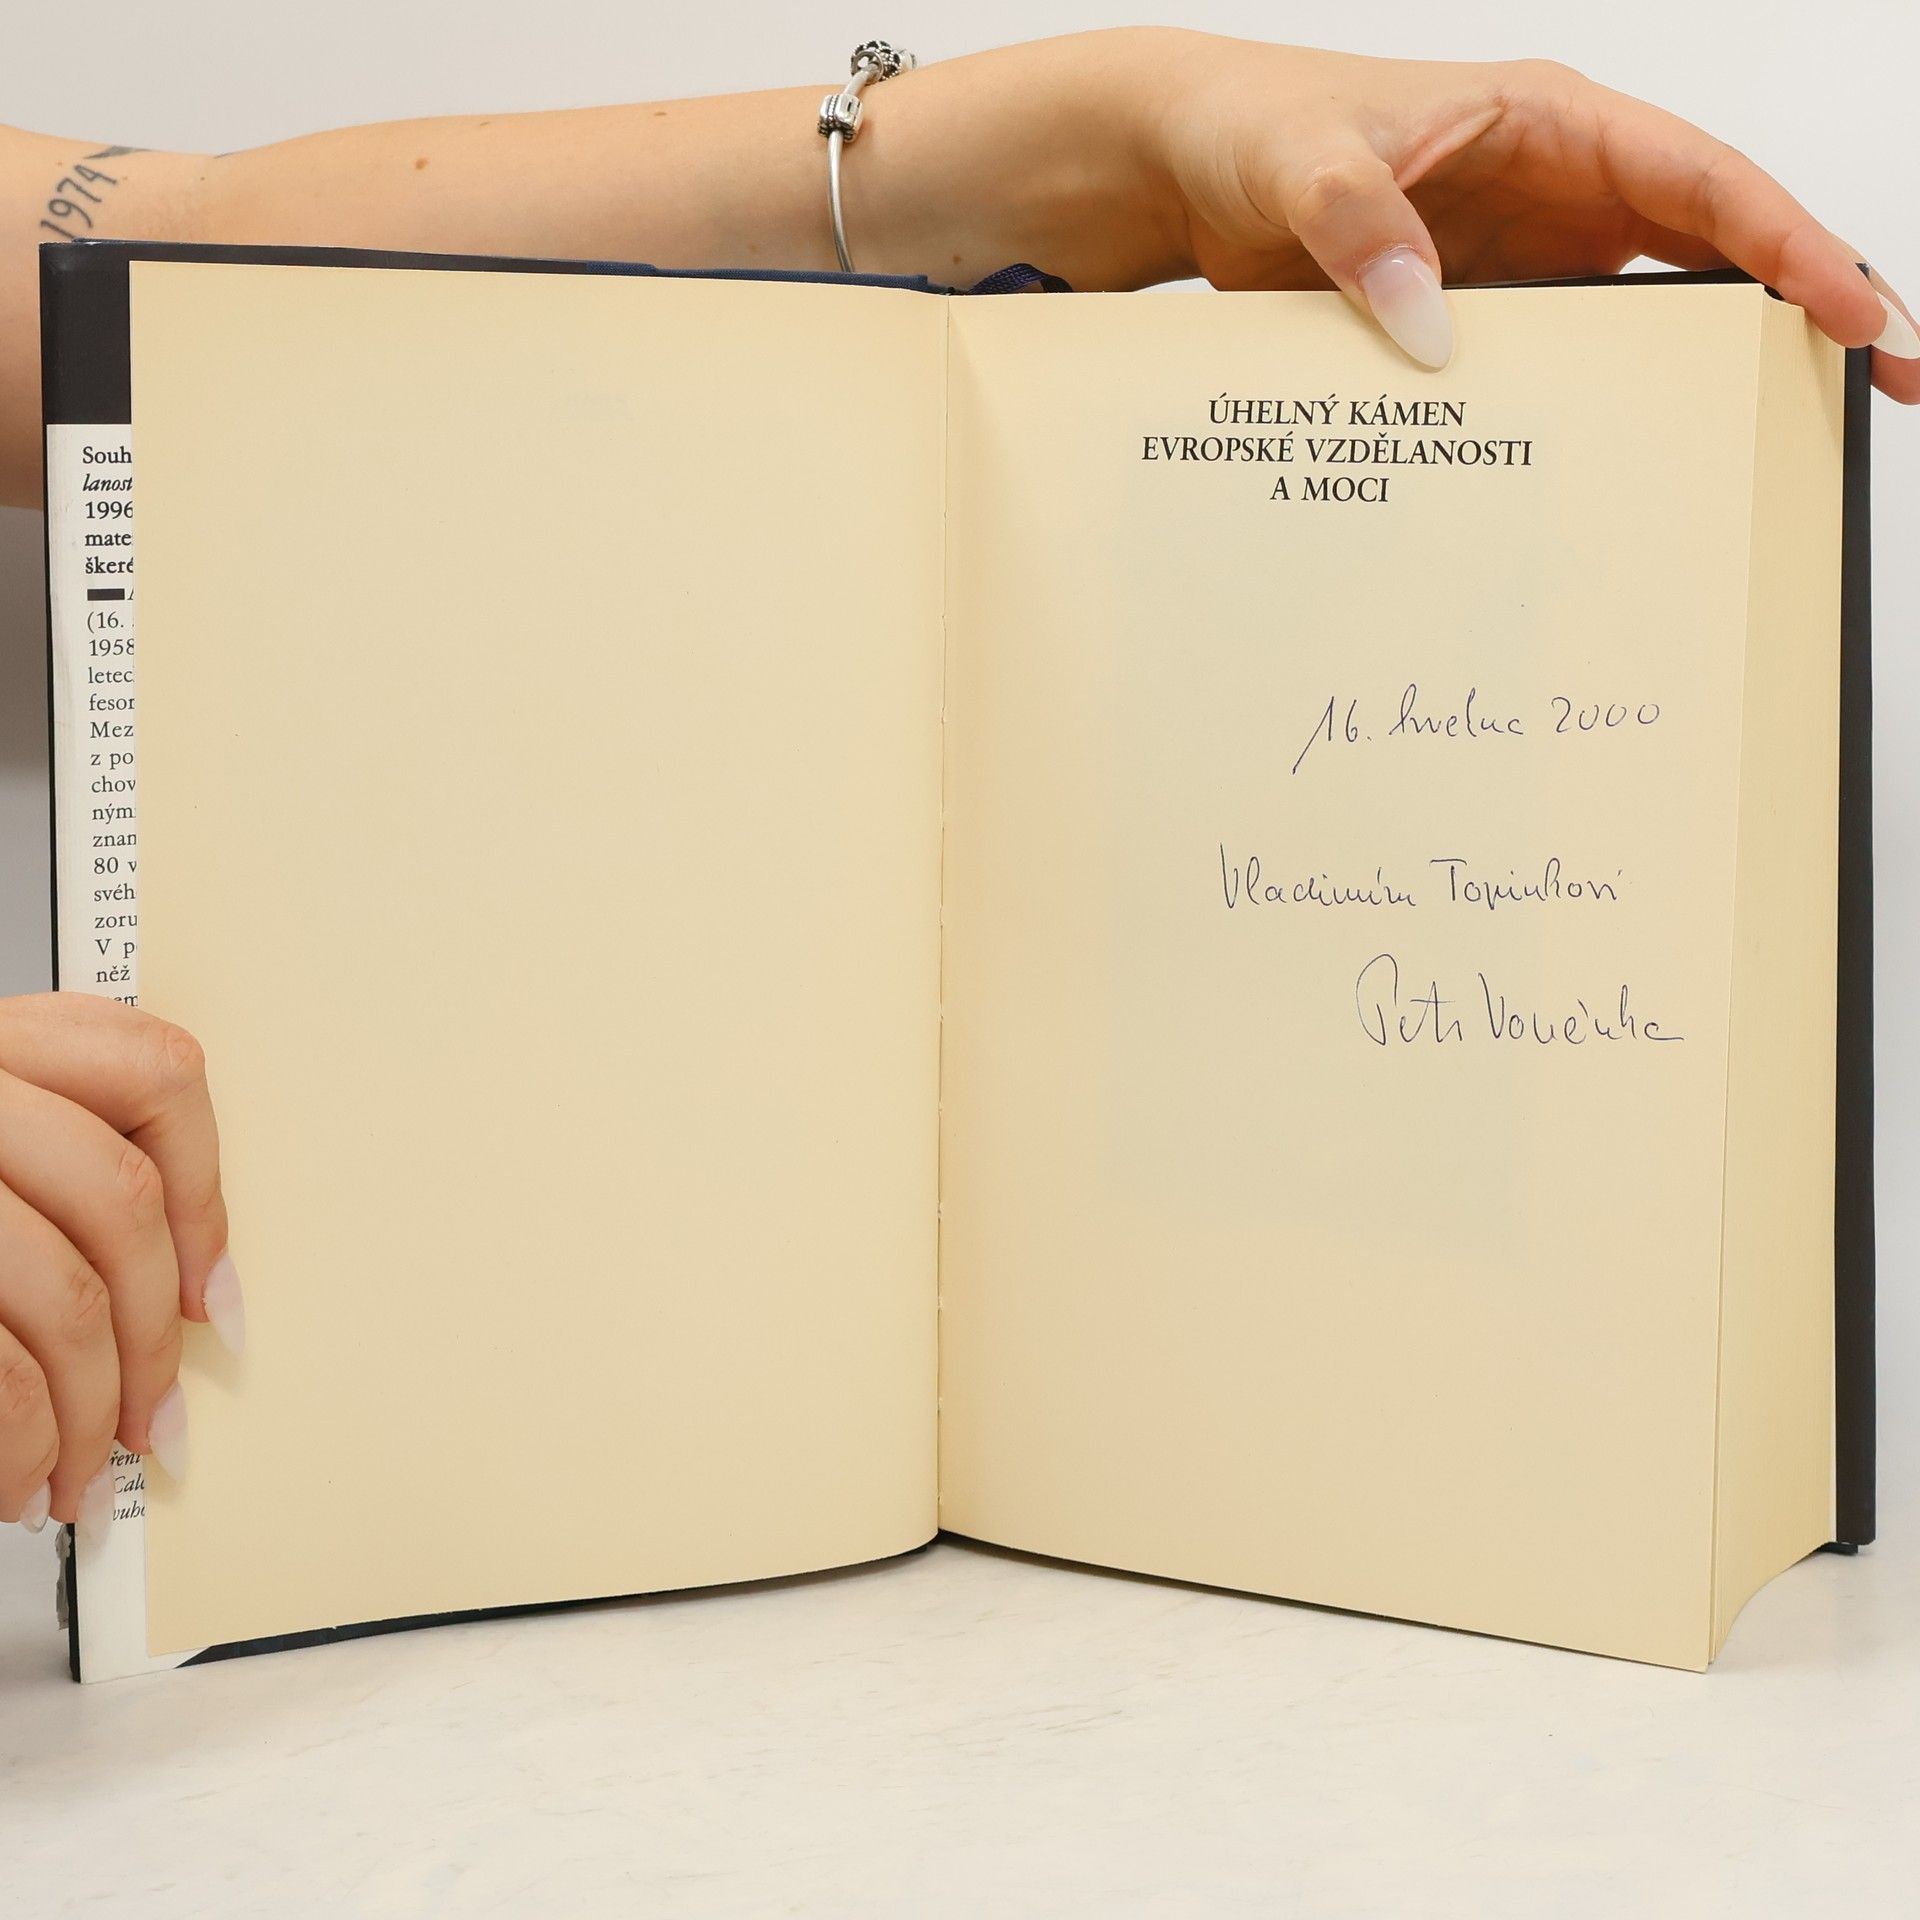 1974
Souh
lanost
1996
mate
škeré
(16.
1958
letec
fesor
Mez
z po
chov
ným
znam
80 v
svéh
zoru
V p
něž
ÚHELNÝ KÁMEN
EVROPSKÉ VZDĚLANOSTI
A MOCI
16. května 2000
Vladimíru Topinkovi
Petr